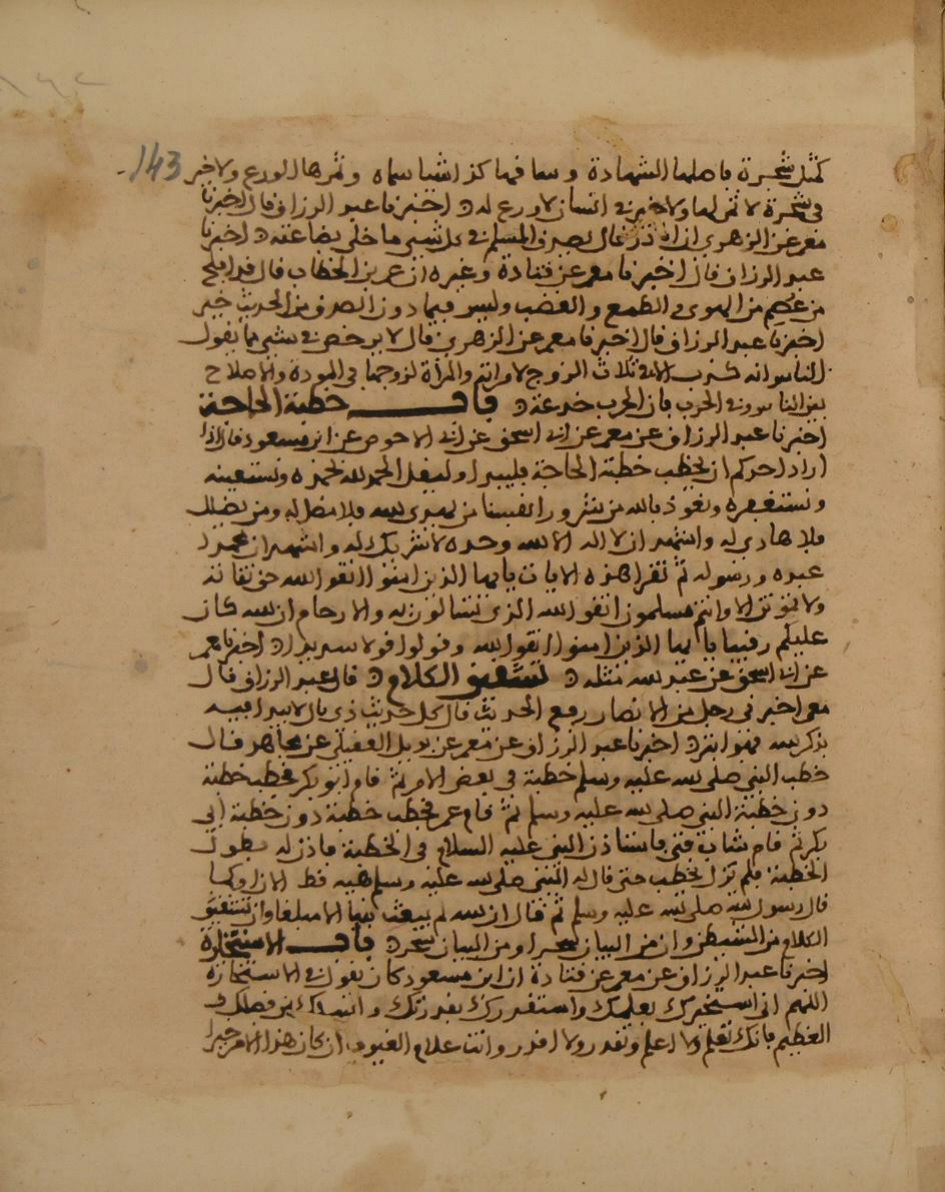 143
كمثل شجرة فاصلها الشهادة وساقها كذا شيا سماه وثمرها الورع ولا خير
في شجرة لا ثمر لها ولا خير في انسان لا ورع له اخبرنا عبد الرزاق قال اخبرنا
معمر عن الزهري ان قال المسلم في كل شي ما خلى بضاعته اخبرنا
عبد الرزاق قال اخبرنا معمر عن قتادة وغيره ان عمر بن الخطاب قال قد افلح
من عصم من الهوى والطمع والغضب وليس فيما دون الصدق من الحديث خير
اخبرنا عبد الرزاق قال اخبرنا معمر عن الزهري قال لا يرخص في شي مما يقول
الناس انه كذب الا في ثلاث الزوج لامراته والمراة لزوجها في المودة والاصلاح
بين الناس وفي الحرب فان الحرب خدعة باب خطبة الحاجة
اخبرنا عبد الرزاق عن معمر عن ابي اسحق عن ابي الاحوص عن ابن مسعود قال اذا
اراد احدكم ان يخطب خطبة الحاجة فليبدا وليقل الحمد لله نحمده ونستعينه
ونستغفره ونعوذ بالله من شرور انفسنا من يهدي الله فلا مضل له ومن يضلل
فلا هادي له واشهد ان لا اله الا الله وحده لا شريك له واشهد ان محمدا
عبده ورسوله ثم تقرا هذه الايات يايها الذين امنوا اتقوا الله حق تقاته
ولا تموتن الا وانتم مسلمون اتقوا الله الذي تسالون به والارحام ان الله كان
عليكم رقيبا يا ايها الذين امنوا اتقوا الله وقولوا قولا سديدا اخبرنا معمر
عن ابي اسحق عن عبد الله مثله تشقيق الكلام قال عبد الرزاق قال
معمر اخبرني رجل من الانصار رفع الحديث قال كل حديث ذي بال لا يبدا فيه
بذكر الله فهو ابتر اخبرنا عبد الرزاق عن معمر عن بديل العقيلي عن مجاهد قال
خطب النبي صلى الله عليه وسلم خطبة في بعض الامر ثم قام ابو بكر فخطب خطبة
دون خطبة النبي صلى الله عليه وسلم ثم قام عمر فخطب خطبة دون خطبة ابي
بكر ثم قام شاب فتى فاستاذن النبي عليه السلام في الخطبة فاذن له فطول
الخطبة فلم يزل يخطب حتى قال له النبي صلى الله عليه وسلم هيه قط الان او كما
قال رسول الله صلى الله عليه وسلم ثم قال ان الله لم يبعث نبيا الا مبلغا وان تشقيق
الكلام من الشيطن وان من البيان لسحرا ومن البيان سحر باب الاستخارة
اخبرنا عبد الرزاق عن معمر عن قتادة ان ابن مسعود كان يقول في الاستخارة
اللهم اني استخيرك بعلمك واستقدرك بقدرتك واسالك من فضلك
العظيم فانك تعلم ولا اعلم وتقدر ولا اقدر وانت علام الغيوب ان كان هذا الامر خيرا